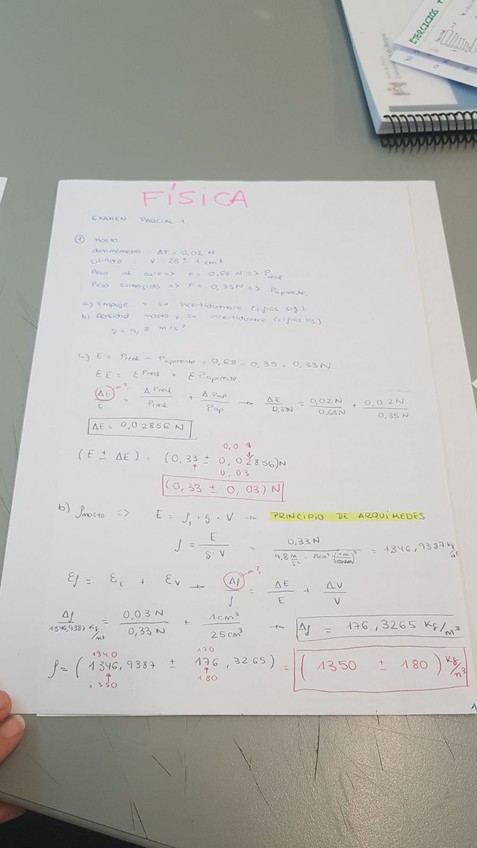 EJERCICIOS
FÍSICA
EXAMEN PARCIAL 1
① Mosto
dinamómetro: ΔF = 0,02 N
cilindro: V 25 ± 1 cm³
Peso aire => F = 0,68 N => Preal
Peso sumergido => F = 0,35N => Paparente.
a) Empuje y su incertidumbre (cifras sig).
b) Densidad mosto y su incertidumbre (cifras sig)
g = 9,8 m/s²
a) E = Preal - Paparente = 0,68 - 0,35 = 0,33N
EE = E Preal + E Paparente.
ΔE/E = ΔPreal/Preal + ΔPap/Pap → ΔE/0,33N = 0,02N/0,68N + 0,02N/0,35N
ΔE = 0,02856 N
0,03
(E ± ΔE) = (0,33 ± 0,02856)N
0,03
(0,33 ± 0,03) N
b) ρmosto => E = ρ · g · V → PRINCIPIO DE ARQUÍMEDES
ρ = E/g·V = 0,33N / 9,8 m/s² · 25cm³ · (1m/100cm)³ = 1346,9387 kg/m³
Ερ = ΕE + ΕV → Δρ/ρ = ΔE/E + ΔV/V
Δρ/1346,9387 kg/m³ = 0,03N/0,33N + 1cm³/25cm³ → Δρ = 176,3265 Kg/m³
1340 170
ρ = (1346,9387 ± 176,3265) = (1350 ± 180) kg/m³
1350 180